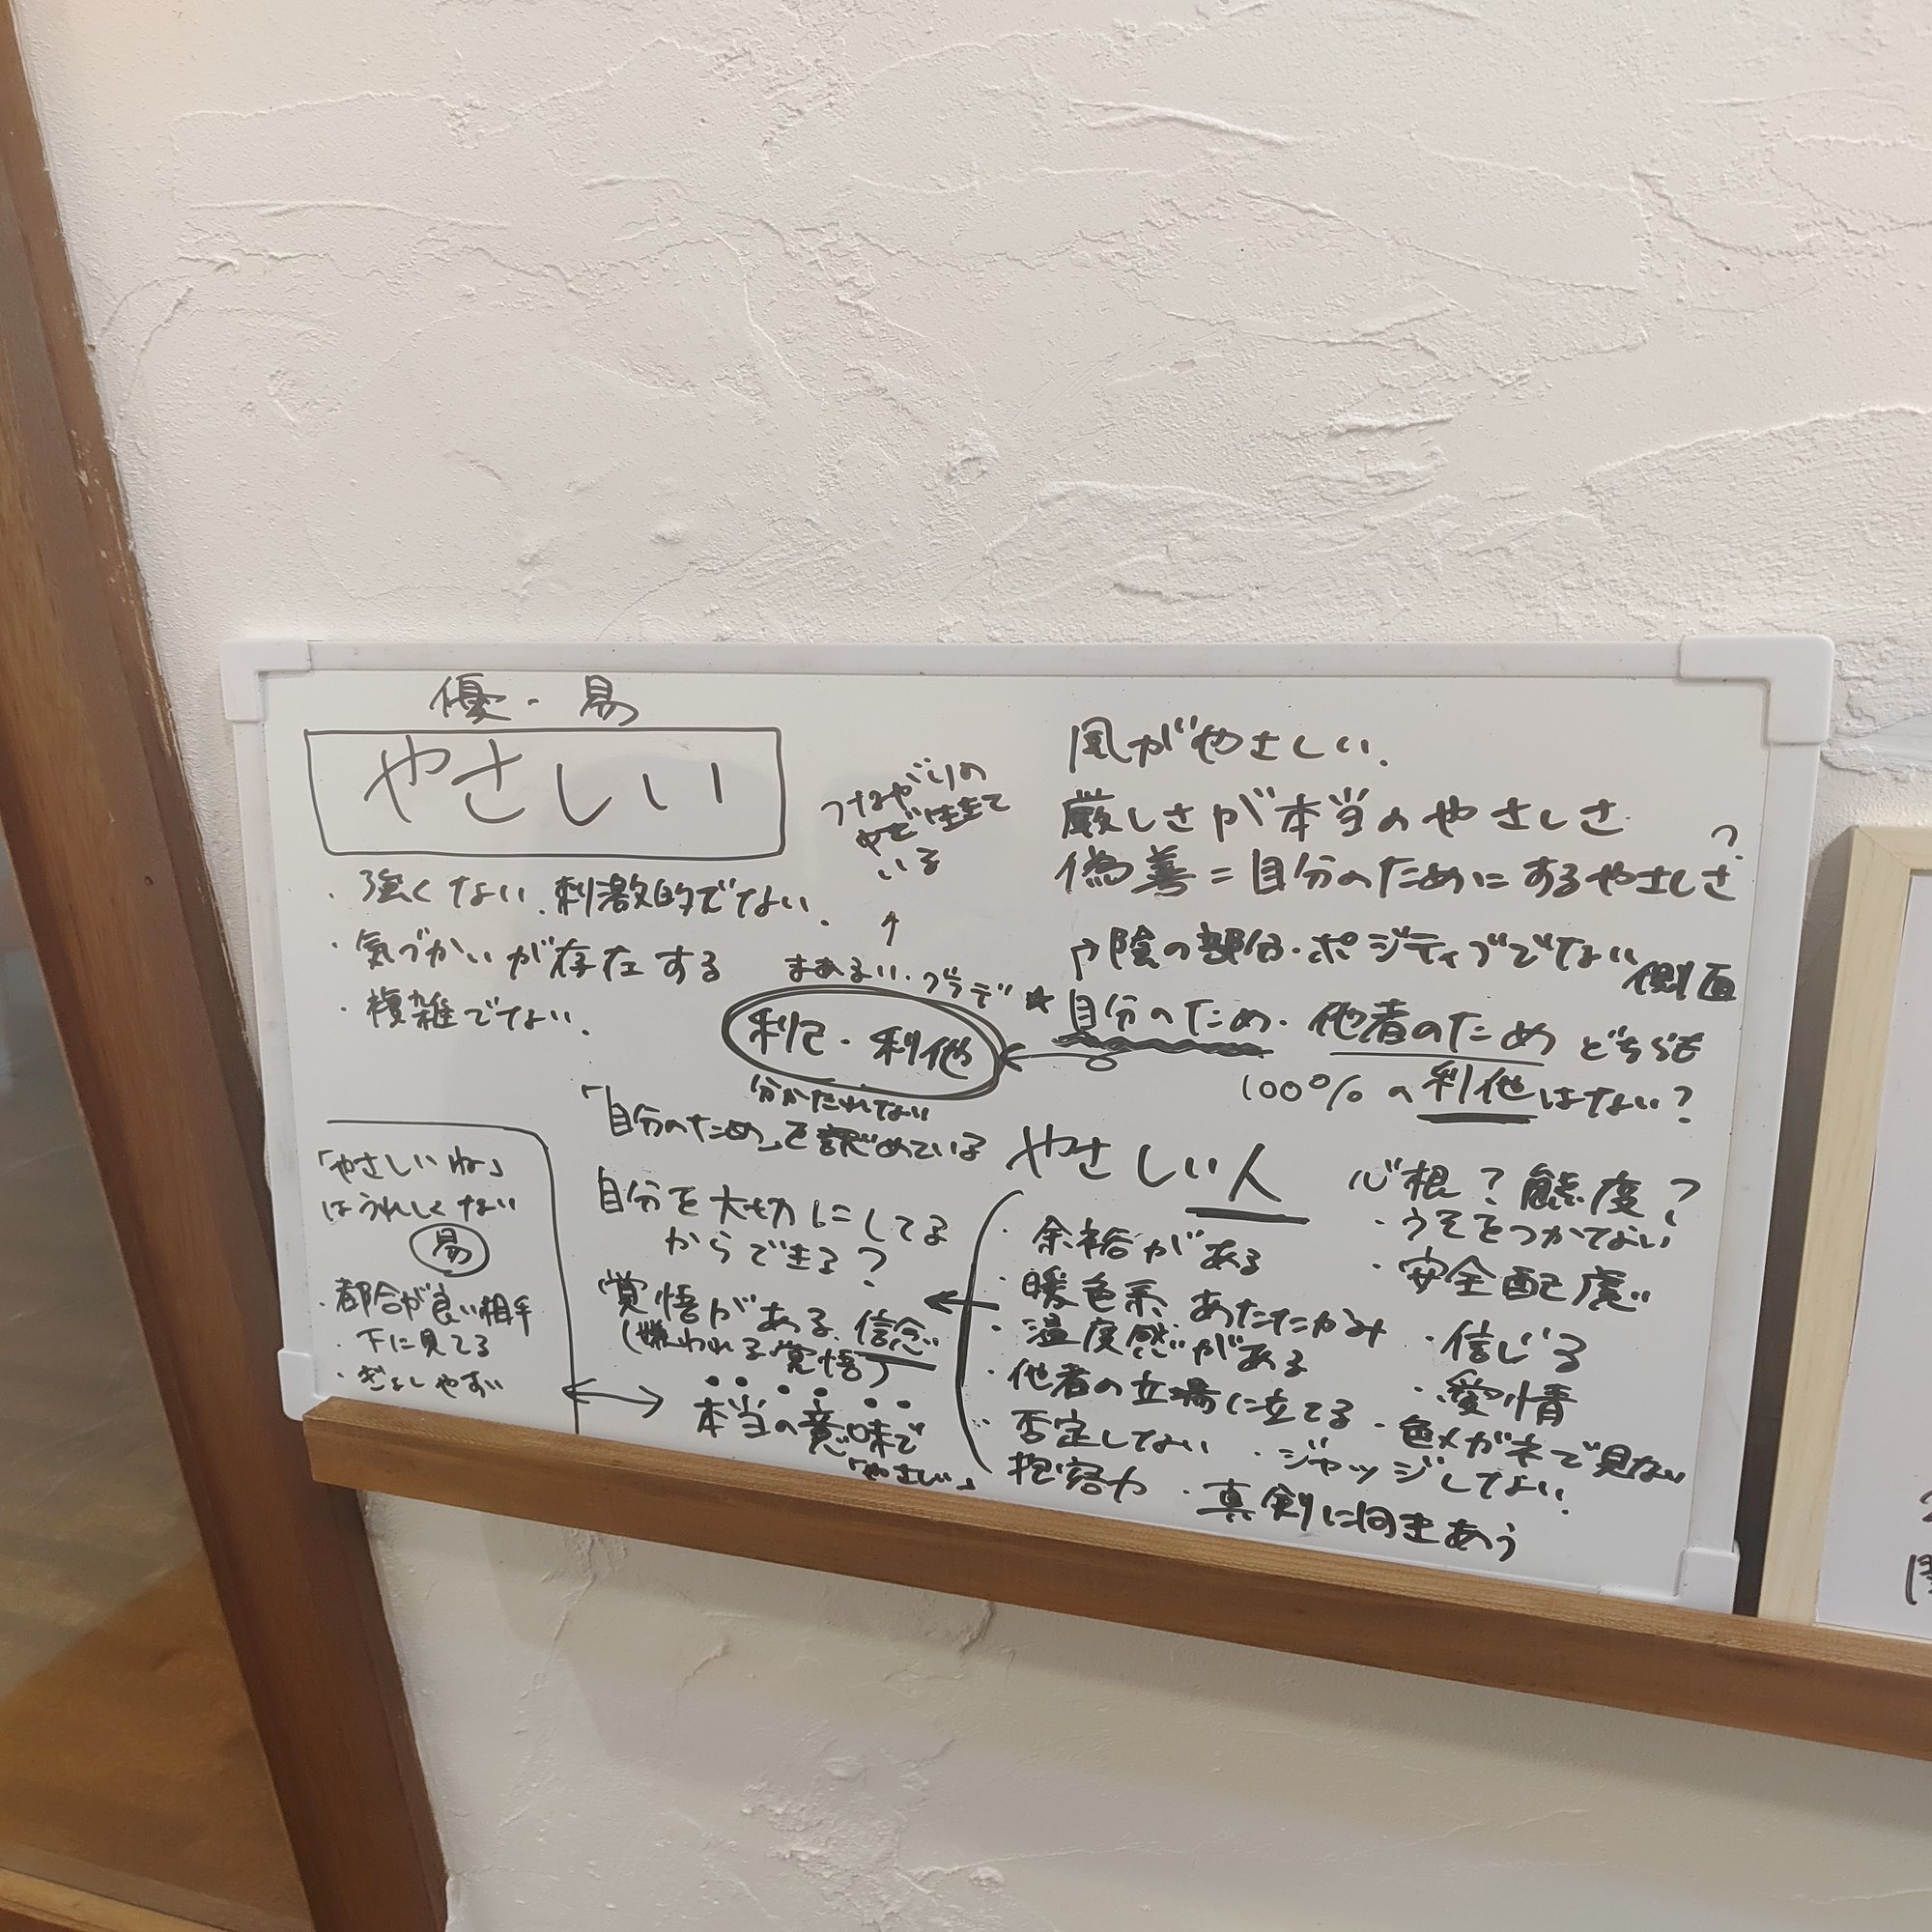 優・易
やさしい
・強くない、刺激的でない。
・気づかいが存在する
・複雑でない。
つながりの
中で生きて
いる
↑
まあるい・グラデ
利己・利他
分かたれない
「自分のため」を認めている
風がやさしい。
厳しさが本当のやさしさ
偽善=自分のためにするやさしさ?
陰の部分・ポジティブでない
側面
★自分のため・他者のため どちらも
100%の利他はない?
「やさしいね」
はうれしくない
易
・都合が良い相手
・下に見てる
・ぎょしやすい
自分を大切にしてる
からできる?
覚悟がある、信念
(嫌われる覚悟)
本当の意味で
「やさしい」
やさしい人
・余裕がある
・暖色系 あたたかみ
・温度感がある
・他者の立場に立てる
否定しない
抱容力
心根?態度?
・うそをつかない
・安全配慮
・信じる
・愛情
・色メガネで見ない
・ジャッジしない。
・真剣に向きあう